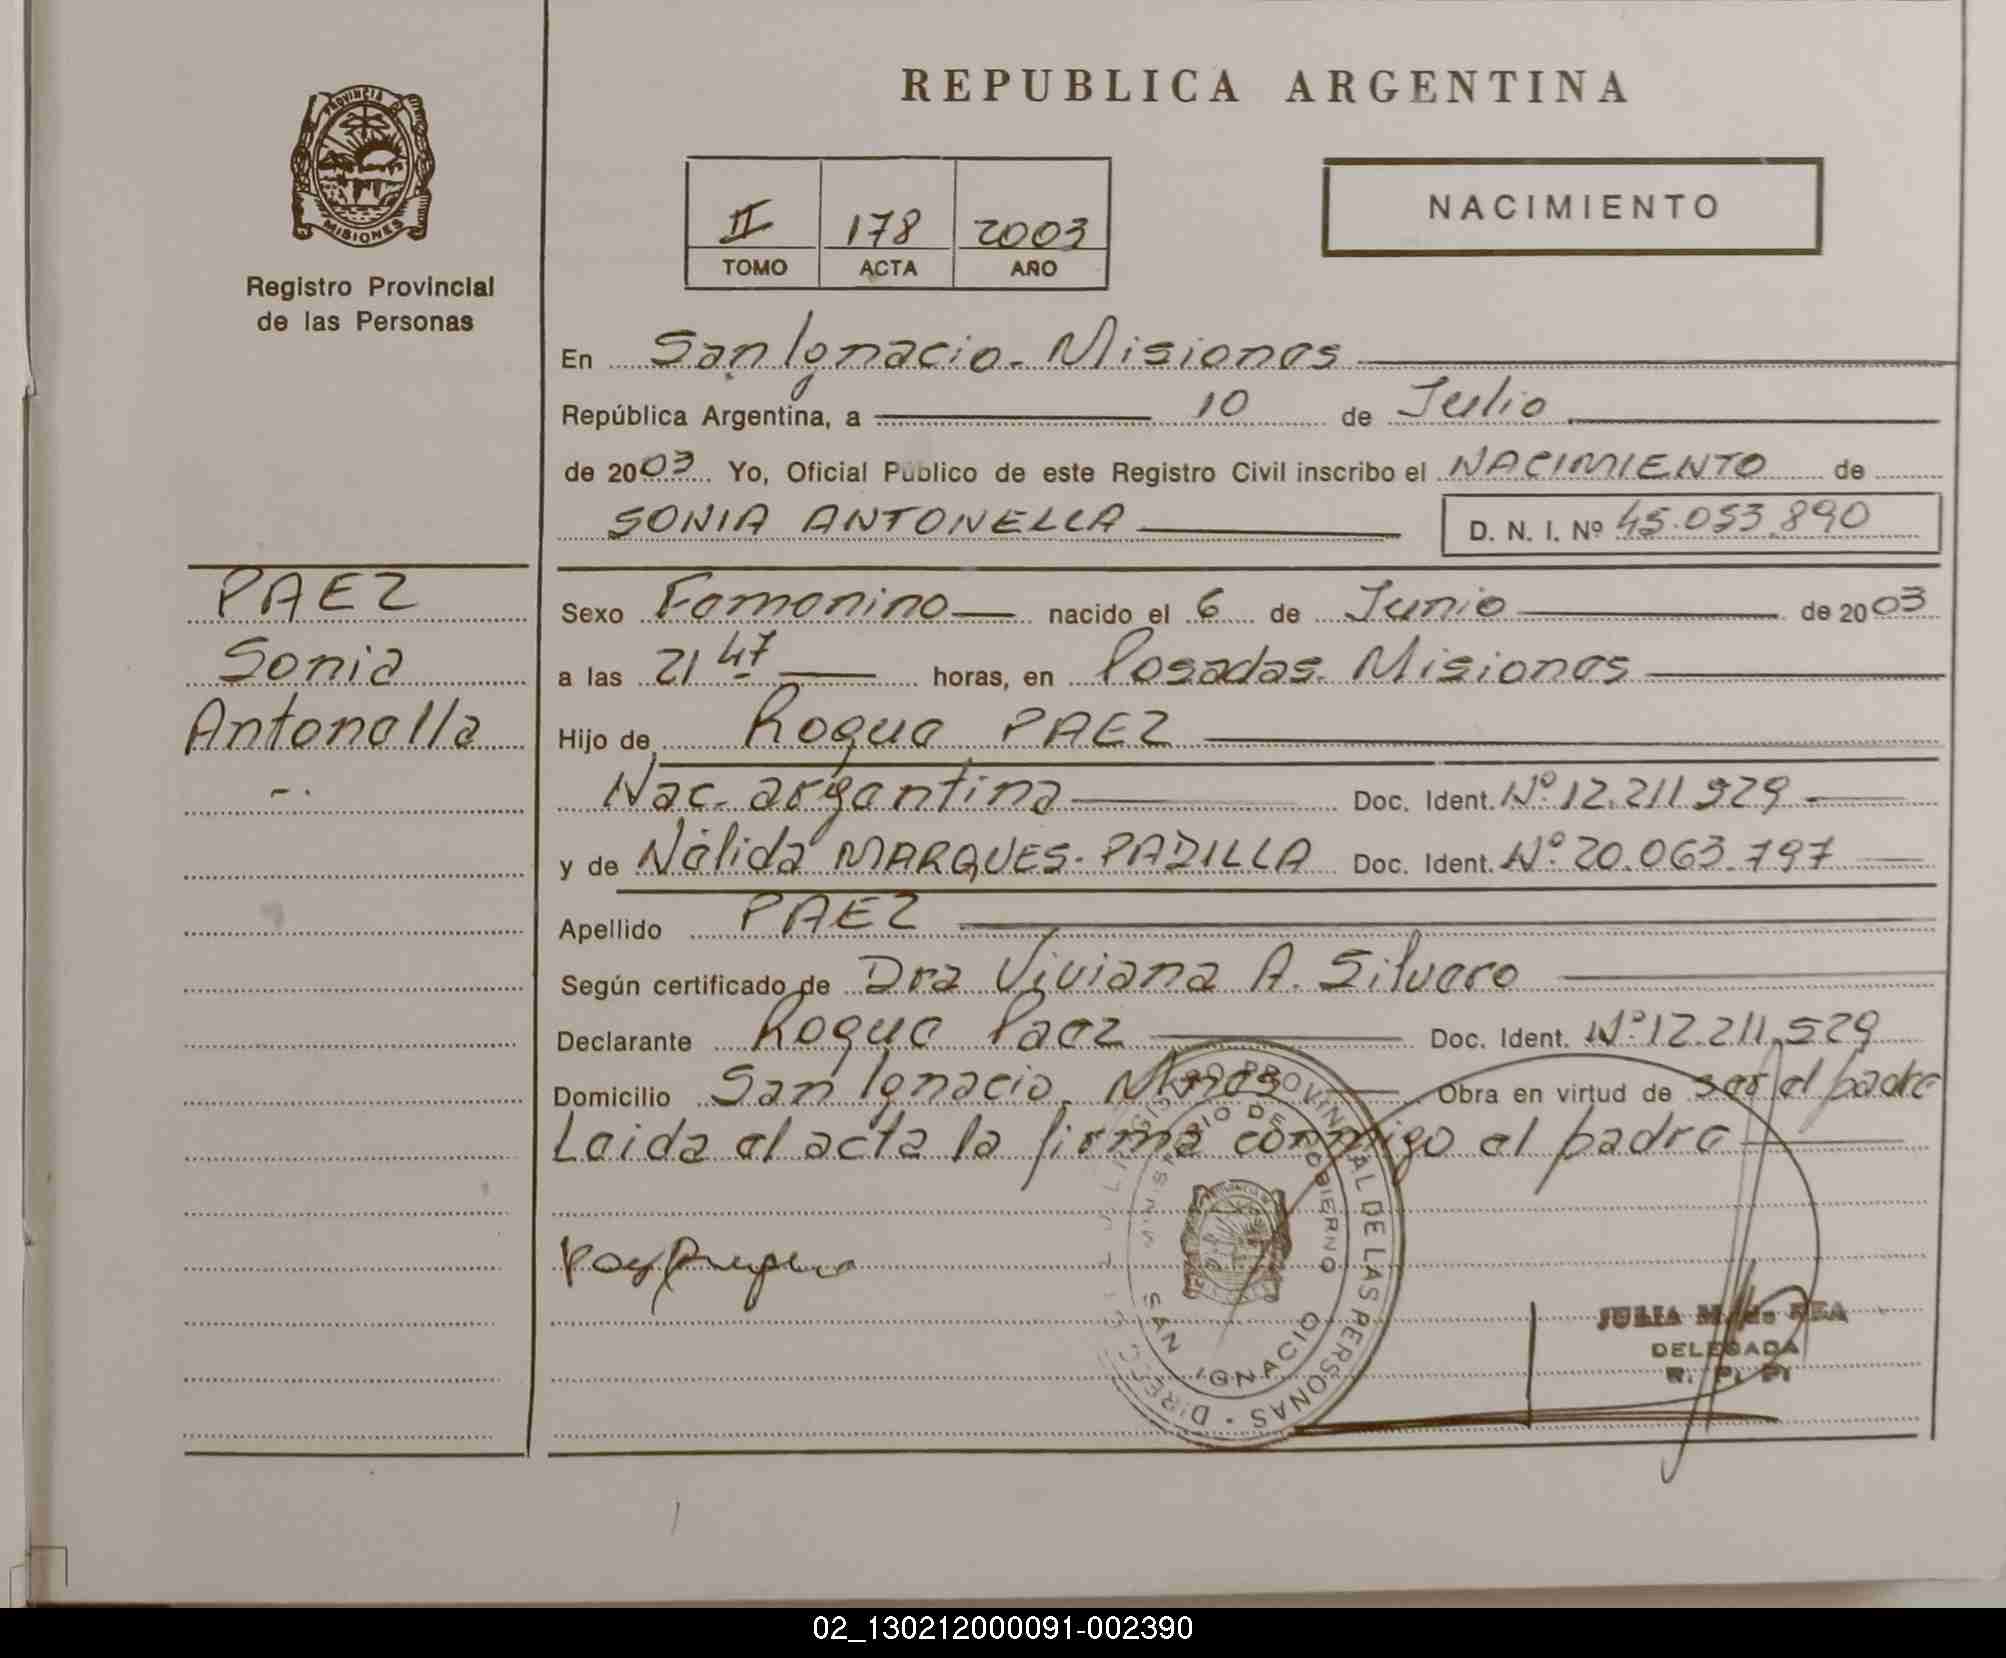 PROVINCIA DE
MISIONES
Registro Provincial
de las Personas
REPUBLICA ARGENTINA
II 178 2003
TOMO ACTA AÑO
NACIMIENTO
En San Ignacio - Misiones
República Argentina, a 10 de Julio
de 2003 Yo, Oficial Público de este Registro Civil inscribo el NACIMIENTO de
SONIA ANTONELLA D. N. I. Nº 45.053.890
PAEZ
Sonia
Antonella
Sexo Femenino nacido el 6 de Junio de 2003
a las 21 47 horas, en Posadas. Misiones
Hijo de Roque PAEZ
Nac. argentina Doc. Ident. Nº 12.211.529
y de Nélida MARQUES - PADILLA Doc. Ident. Nº 20.063.797
Apellido PAEZ
Según certificado de Dra Viviana A. Silvero
Declarante Roque Paez Doc. Ident. Nº 12.211.529
Domicilio San Ignacio. Mnes Obra en virtud de ser el padre
Leida el acta la firma conmigo el padre
PROVINCIAL DE LAS PERSONAS - DIRECC
MINISTERIO DE GOBIERNO
SAN IGNACIO
JULIA M. de REA
DELEGADA
R. P. P.
02_130212000091-002390